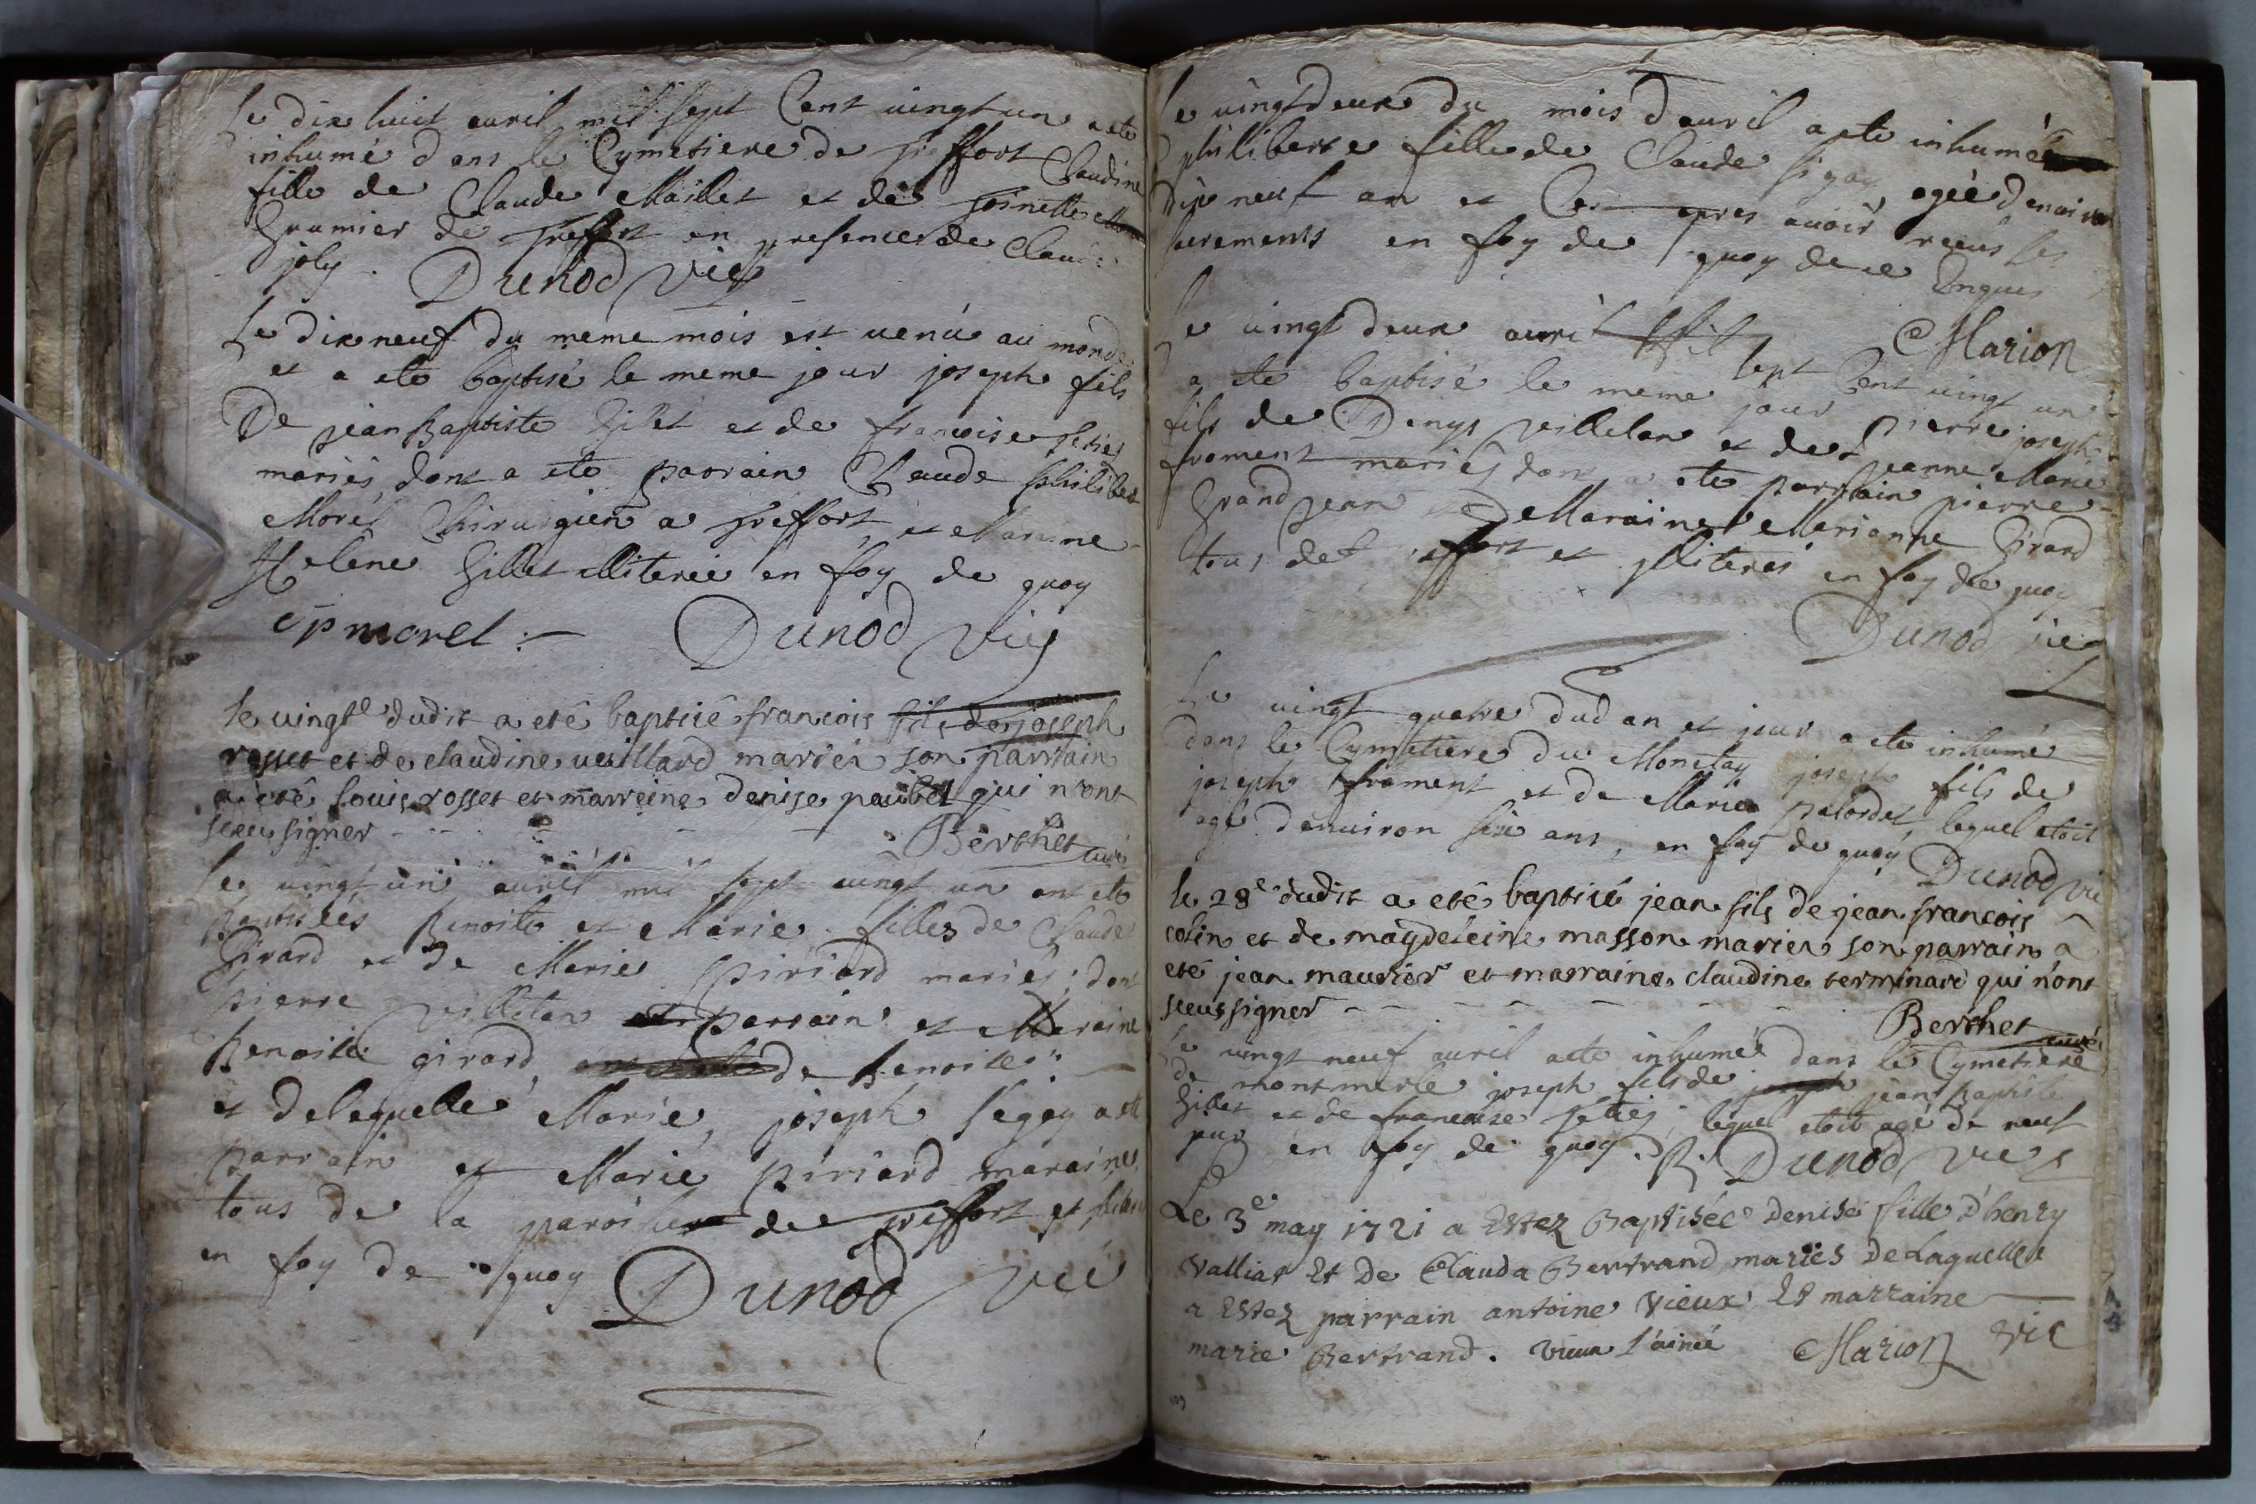 Le dix huit avril mil sept Cent vingt un a ete
inhumé dans le Cymetiere de treffort Claudine
fille de Claude Maillet et de
de treffort en presence de Claude
joly. Dunod vic
Le dix neuf du même mois est venù au monde
et a ete baptisé le meme jour joseph fils
De jean Baptiste Gillet et de francoise
mariés, dont a ete parrain Claude philibert
Morel Chirurgien a treffort, et Maraine
Helêne Gillet illiterée en foy de quoy
cpmorel Dunod vic
le vingte dudit a eté baptisé francois fils de joseph
rosset et de claudine vuillard mariés son parrain
a eté louis rosset et marreine denise paubel qui n'ont
sceu signer Berthet curé
Le vingt un avril mil sept vingt un ont ete
baptisées Benoite et Marie filles de Claude
Girard et de Marie piriard mariés; dont
pierre villetan parrain et Maraine
Benoite girard, de Benoite
et de laquelle Marie, joseph segey a ete
parrain et Marie piriard maraine,
tous de la paroisse de treffort et
en foy de quoy Dunod vic
le vingt deux du mois d'avril a ete inhumée
philiberte fille de Claude agée denviron
dix neuf an et apres avoir receus les
sacrements en foy de quoy
Marion
le vingt deux avril sept Cent vingt un
a ete baptisé le meme jour pierre joseph
fils de Denys villetan et de jeanne Marie
froment mariés dont a ete parrain pierre
Grand jean et Maraine Marianne Girard
tous de treffort et illiterés en foy de quoy
Dunod vic
Le vingt quatre dud an et jour a ete inhumé
dans le Cymetiere du Monetay joseph fils de
joseph froment et de Marie palordet, lequel etoit
agé denviron six ans, en foy de quoy Dunod vic
le 28e dudit a eté baptisé jean fils de jean francois
colin et de magdeleine masson mariés son parrain a
eté jean maurier et marraine claudine terminare qui n'ont
sceu signer
Berthet curé
le vingt neuf avril a ete inhumé dans le Cymetiere
de montmerle joseph fils de jean baptiste
Gillet et de francoise lequel etoit agé de neuf
jour en foy de quoy. Dunod vic
Le 3e may 1721 a Estez Baptisée denise fille d'henry
valliar Et De Clauda Bertrand mariés De Laquelle
a Estez parrain antoine vieux Et marraine
marie Bertrand. vieux l'ainé Marion vic